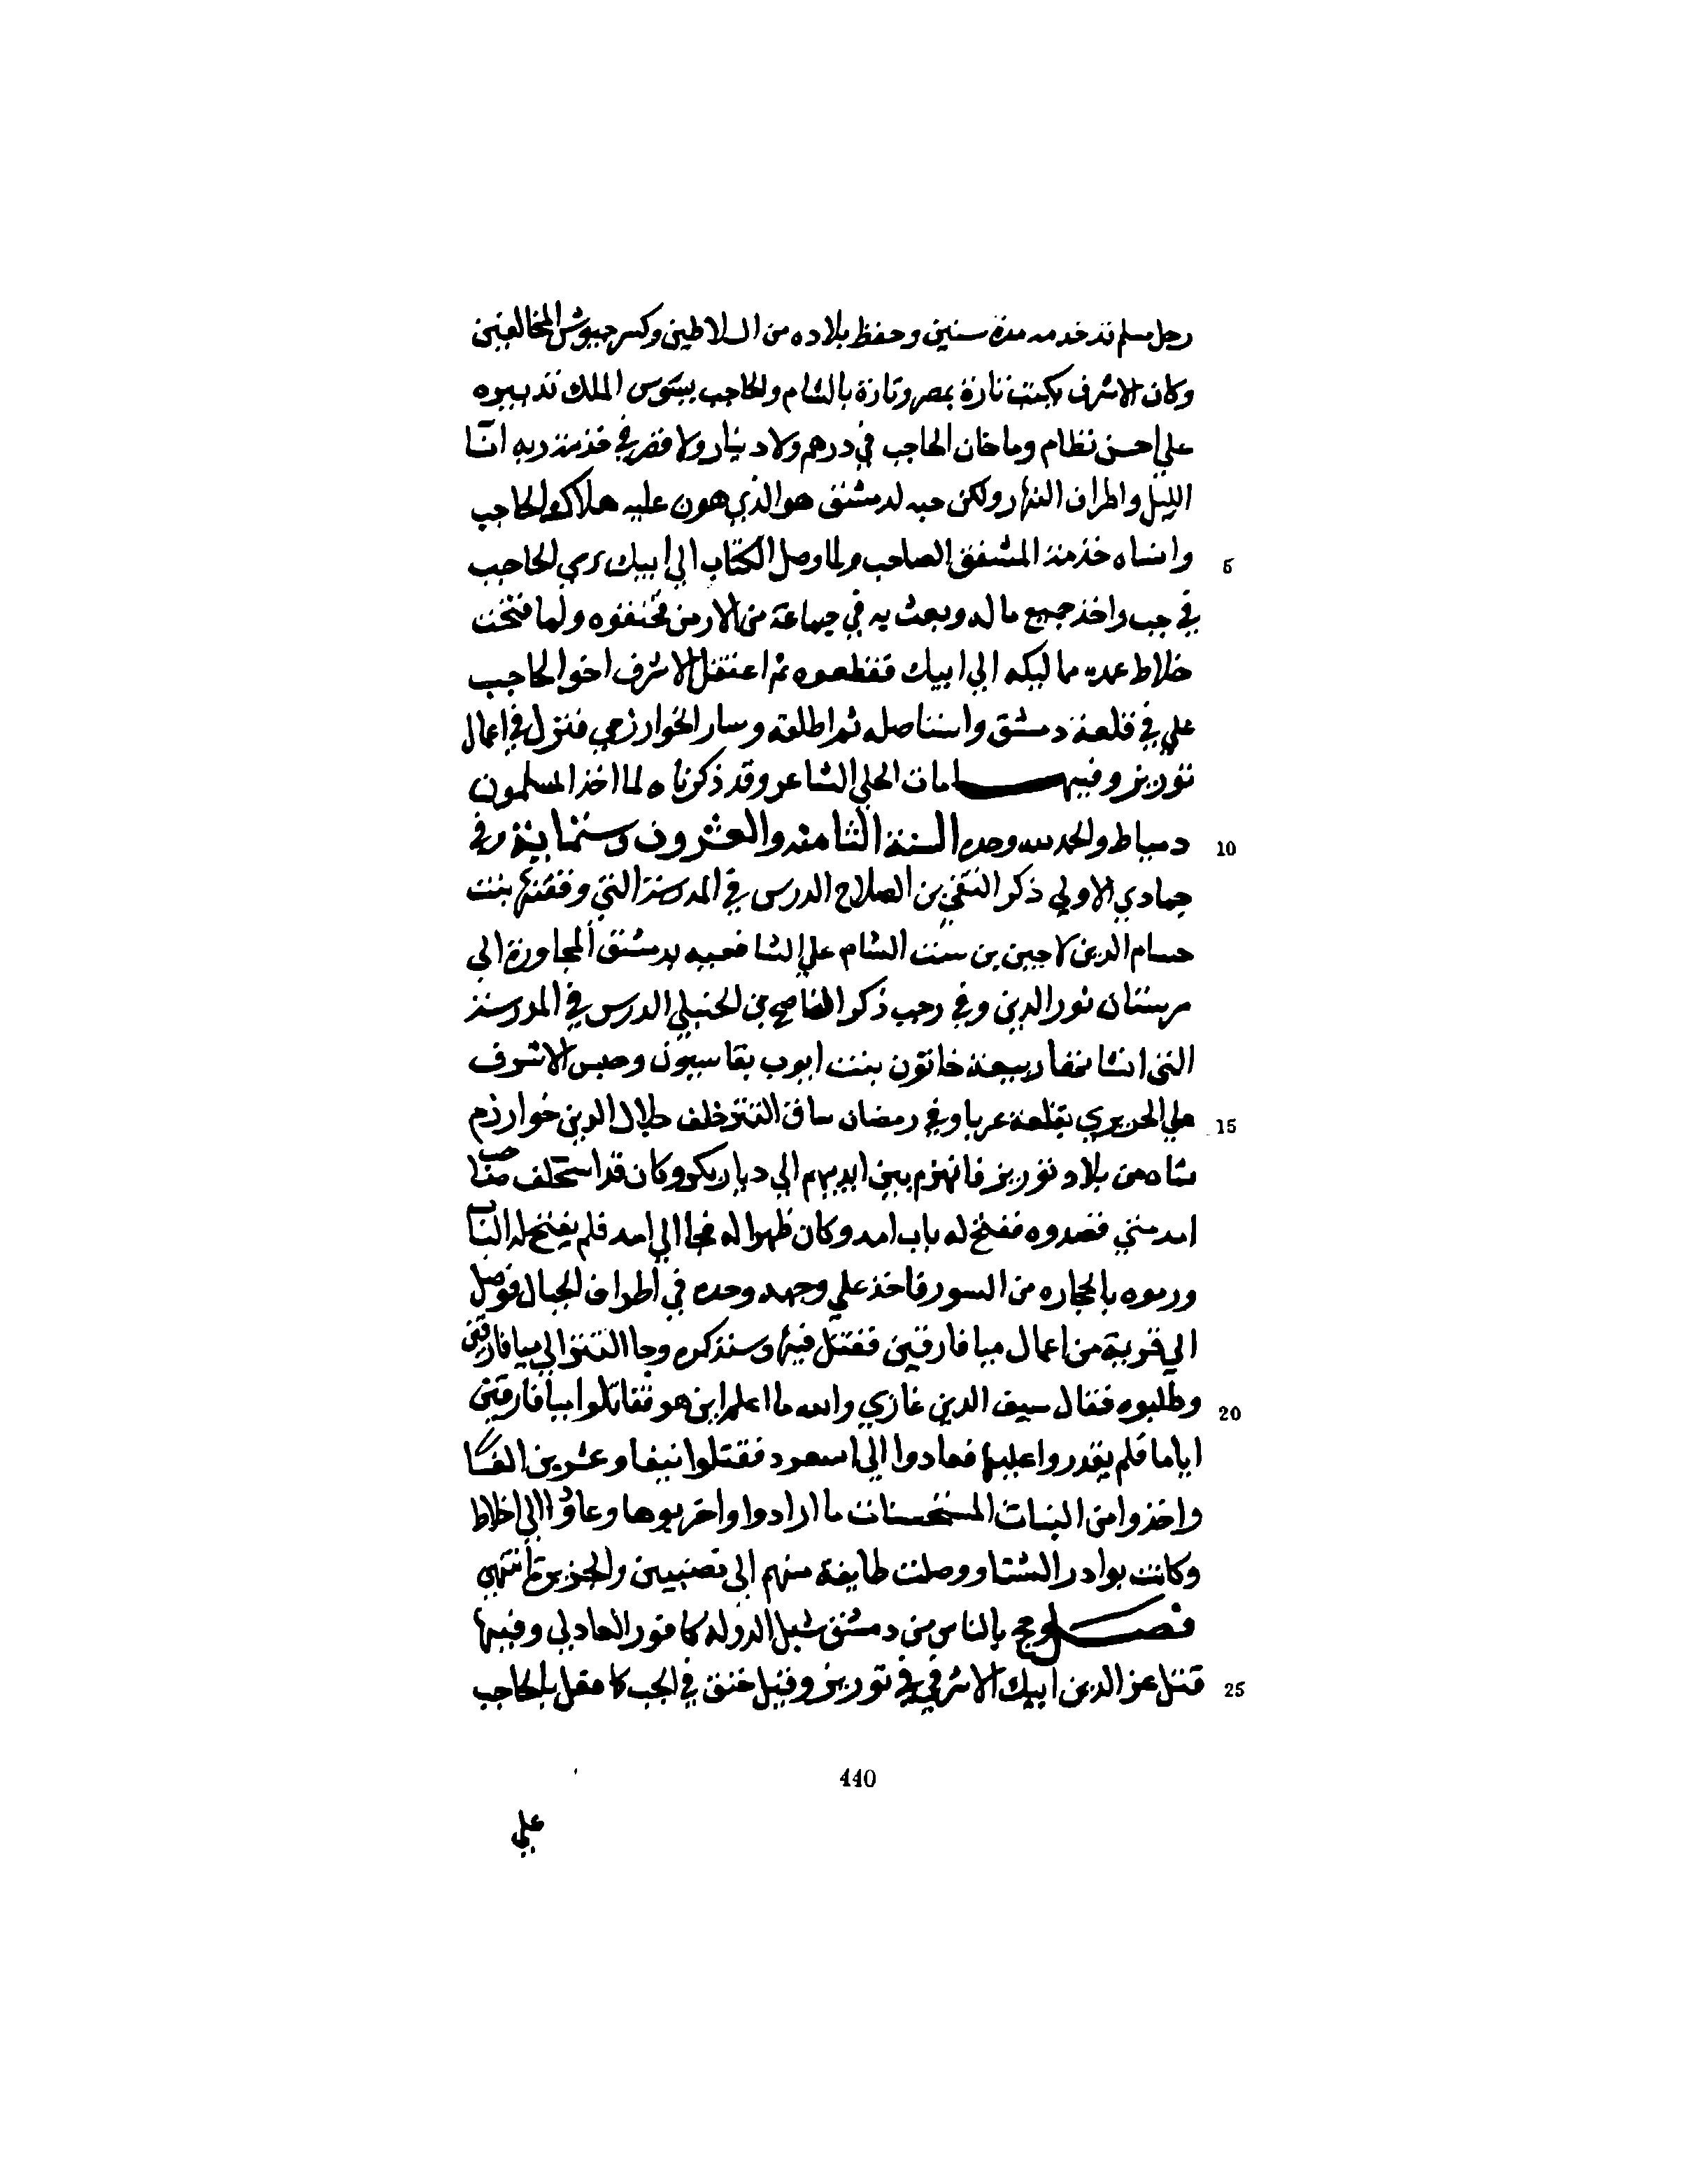 رجل مسلم قد خدمه مدة سنين وحفظ بلاده من السلاطين وكسر جيوش المخالفين
وكان الاشرف يكبت تارة بمصر وتارة بالشام والحاجب يسوس الملك تدبيره
علي احسن نظام وما خان الحاجب في درهم ولا دينار ولا قصر في خذمة ربه انا
الليل واطراف النهار ولكن حبه لدمشق هو الذي هون عليه هلاك الحاجب
5 وانساه خذمة المشفق الصاحب ولما وصل الكتاب الي ايبك رمي الحاجب
في جب واخذ جميع ماله وبعث به في جماعة من الارمن فخنقوه ولما فتحت
خلاط عمد مماليكه الي ايبك فقطعوه ثم اعتقل الاشرف اخو الحاجب
علي في قلعة دمشق واستاصله ثم اطلقه وسار الخوارزمي فنزل في اعمال
توريز وفيها مات الحلي الشاعر وقد ذكرناه لما اخذ المسلمون
10 دمياط والحمد لله وحده السنة الثامنه والعشرون وستماية وفي
جمادي الاولي ذكر التقي بن الصلاح الدرس في المدرسة التي وقفتها بنت
حسام الدين لاجين بن ست الشام علي الشافعيه بدمشق المجاورة الي
مرستان نور الدين وفي رجب ذكر الناصح بن الحنبلي الدرس في المدرسة
التي انشاتها ربيعة خاتون بنت ايوب بقاسيون وحبس الاشرف
15 علي الحريري بقلعة عزبا وفي رمضان ساق التتر خلف جلال الدين خوارزم
شاه من بلاد توريز فانهزم بين ايديهم الي ديار بكر وكان قد استحلف صاحب
امد متي قصدوه ففتح له باب امد وكان ظهرا له فجا الي امد فلم يفتح له الباب
ورموه بالحجاره من السور فاخذ علي وجهه وحده في اطراف الجبال فوصل
الي قرية من اعمال ميافارقين فقتل فيها وسنذكره وجا التتر الي ميافارقين
20 وطلبوه فقال سيف الدين غازي والله ما اعلم اين هو فقاتلوا ميافارقين
اياما فلم يقدروا عليها فعادوا الي اسعرد فقتلوا نيفا وعشرين الفا
واخذوا من البنات المستحسنات ما ارادوا واخربوها وعادوا الي اخلاط
وكانت بوادر الشتا ووصلت طايفة منهم الي نصيبين والجزيرة انتهي
فصل وحج بالناس من دمشق شبل الدوله كافور العادلي وفيها
25 قتل عز الدين ايبك الاشرفي في توريز وقيل خنق في الجب كما فعل بالحاجب
440
علي